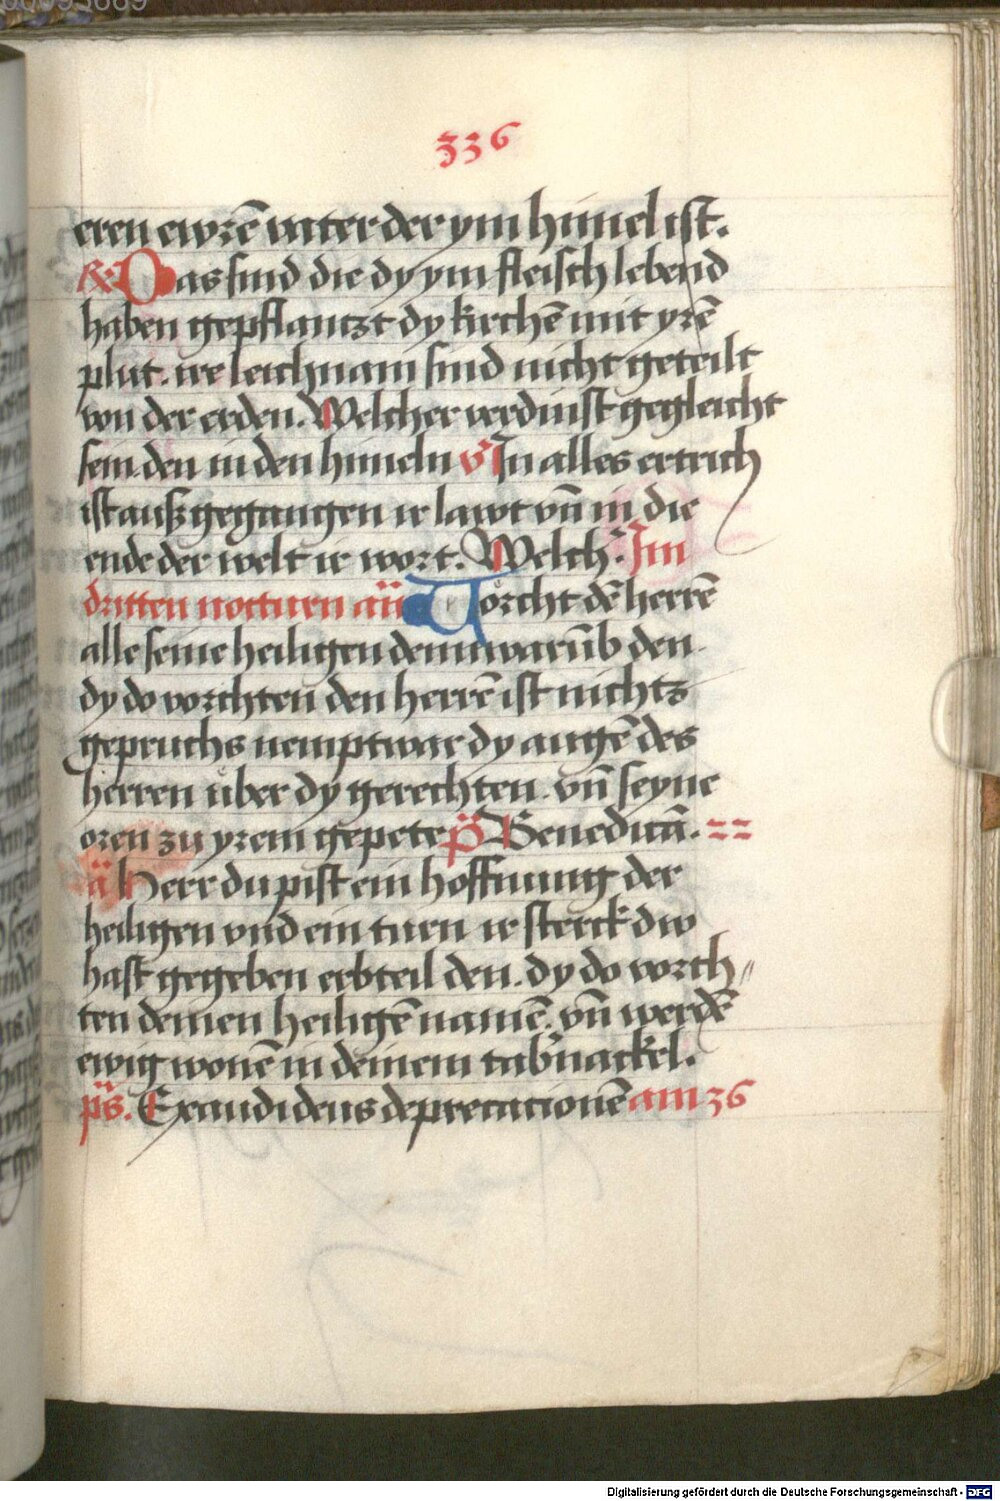 336
eren ewrē vater der ym himel ist.
℟ Das sind die dy ym fleisch lebend
haben gepflantzt dy kirchē mit yrē
plut. ire leichnam sind nicht geteilt
von der erden. Welcher verdinst gegleicht
sein den in den himeln v̕ In alles ertrich
ist auß gegangen ir lawt vn̄ in die
ende der welt ir wort. Welch̕. Im
dritten notturn an̄ Vorcht dē herrē
alle seine heiligen denn warūb den
dy do vorchten den herrē ist nichtz
gepruchs nemptwar dy augē des
herren über dy gerechten. vn̄ seyne
oren zu yrem gepete p̄s Benedicā.
ā Herr du pist ein hoffnung der
heiligen vnd ein turn ir sterck dw
hast gegeben erbteil den. dy do vorch〃
ten deinen heiligē namē. vn̄ werdē
ewig wonē in deinem tab̕nackel.
p̄s. Exaudi deus deprecationē am 36
Digitalisierung gefördert durch die Deutsche Forschungsgemeinschaft - DFG